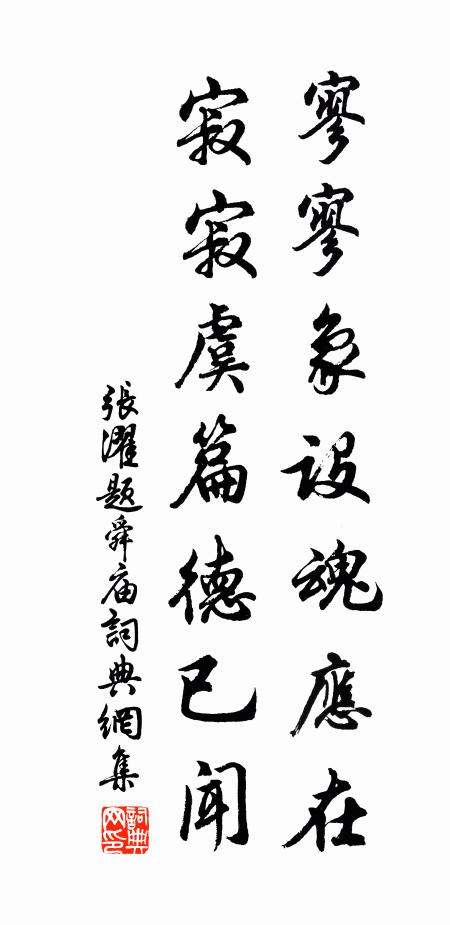 寥寥象設魂應在
寂寂虞篇德已闻
張濯題舜庙詞典網集
詞典网印